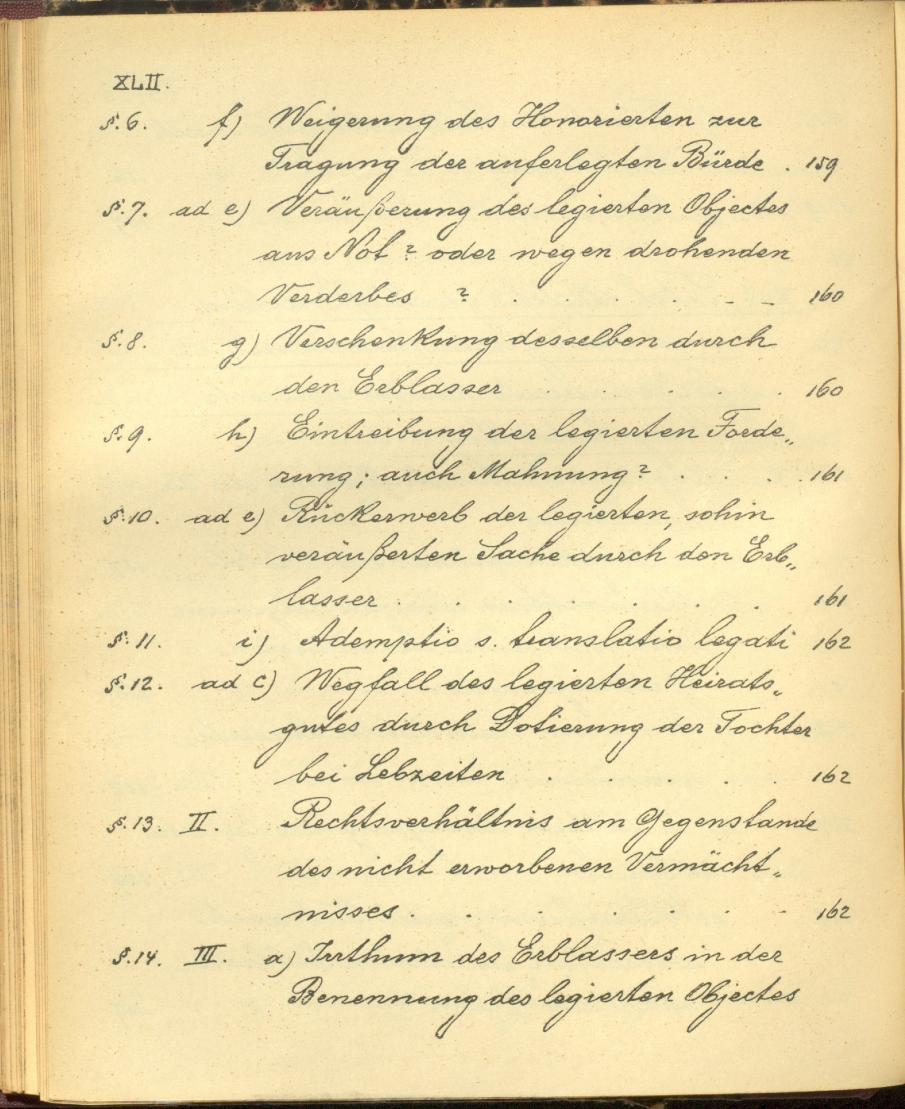 XLII.
§.6. f) Weigerung des Honorierten zur
Tragung der auferlegten Bürde . 159
§.7. ad e) Veräußerung des legierten Objectes
aus Not? oder wegen drohenden
Verderbes ? . . . . . - - 160
§.8. g) Verschenkung desselben durch
den Erblasser . . . . . 160
§.9. h) Eintreibung der legierten Forde„
rung; auch Mahnung? . . . . 161
§.10. ad e) Rückerwerb der legierten, sohin
veräußerten Sache durch den Erb„
lasser . . . . . . . 161
§.11. i) Ademptio s. translatio legati 162
§.12. ad c) Wegfall des legierten Heirats„
gutes durch Dotierung der Tochter
bei Lebzeiten . . . . . 162
§.13. II. Rechtsverhältnis am Gegenstande
des nicht erworbenen Vermächt„
nisses . . . . . . . 162
§.14. III. a) Irrthum des Erblassers in der
Benennung des legierten Objectes